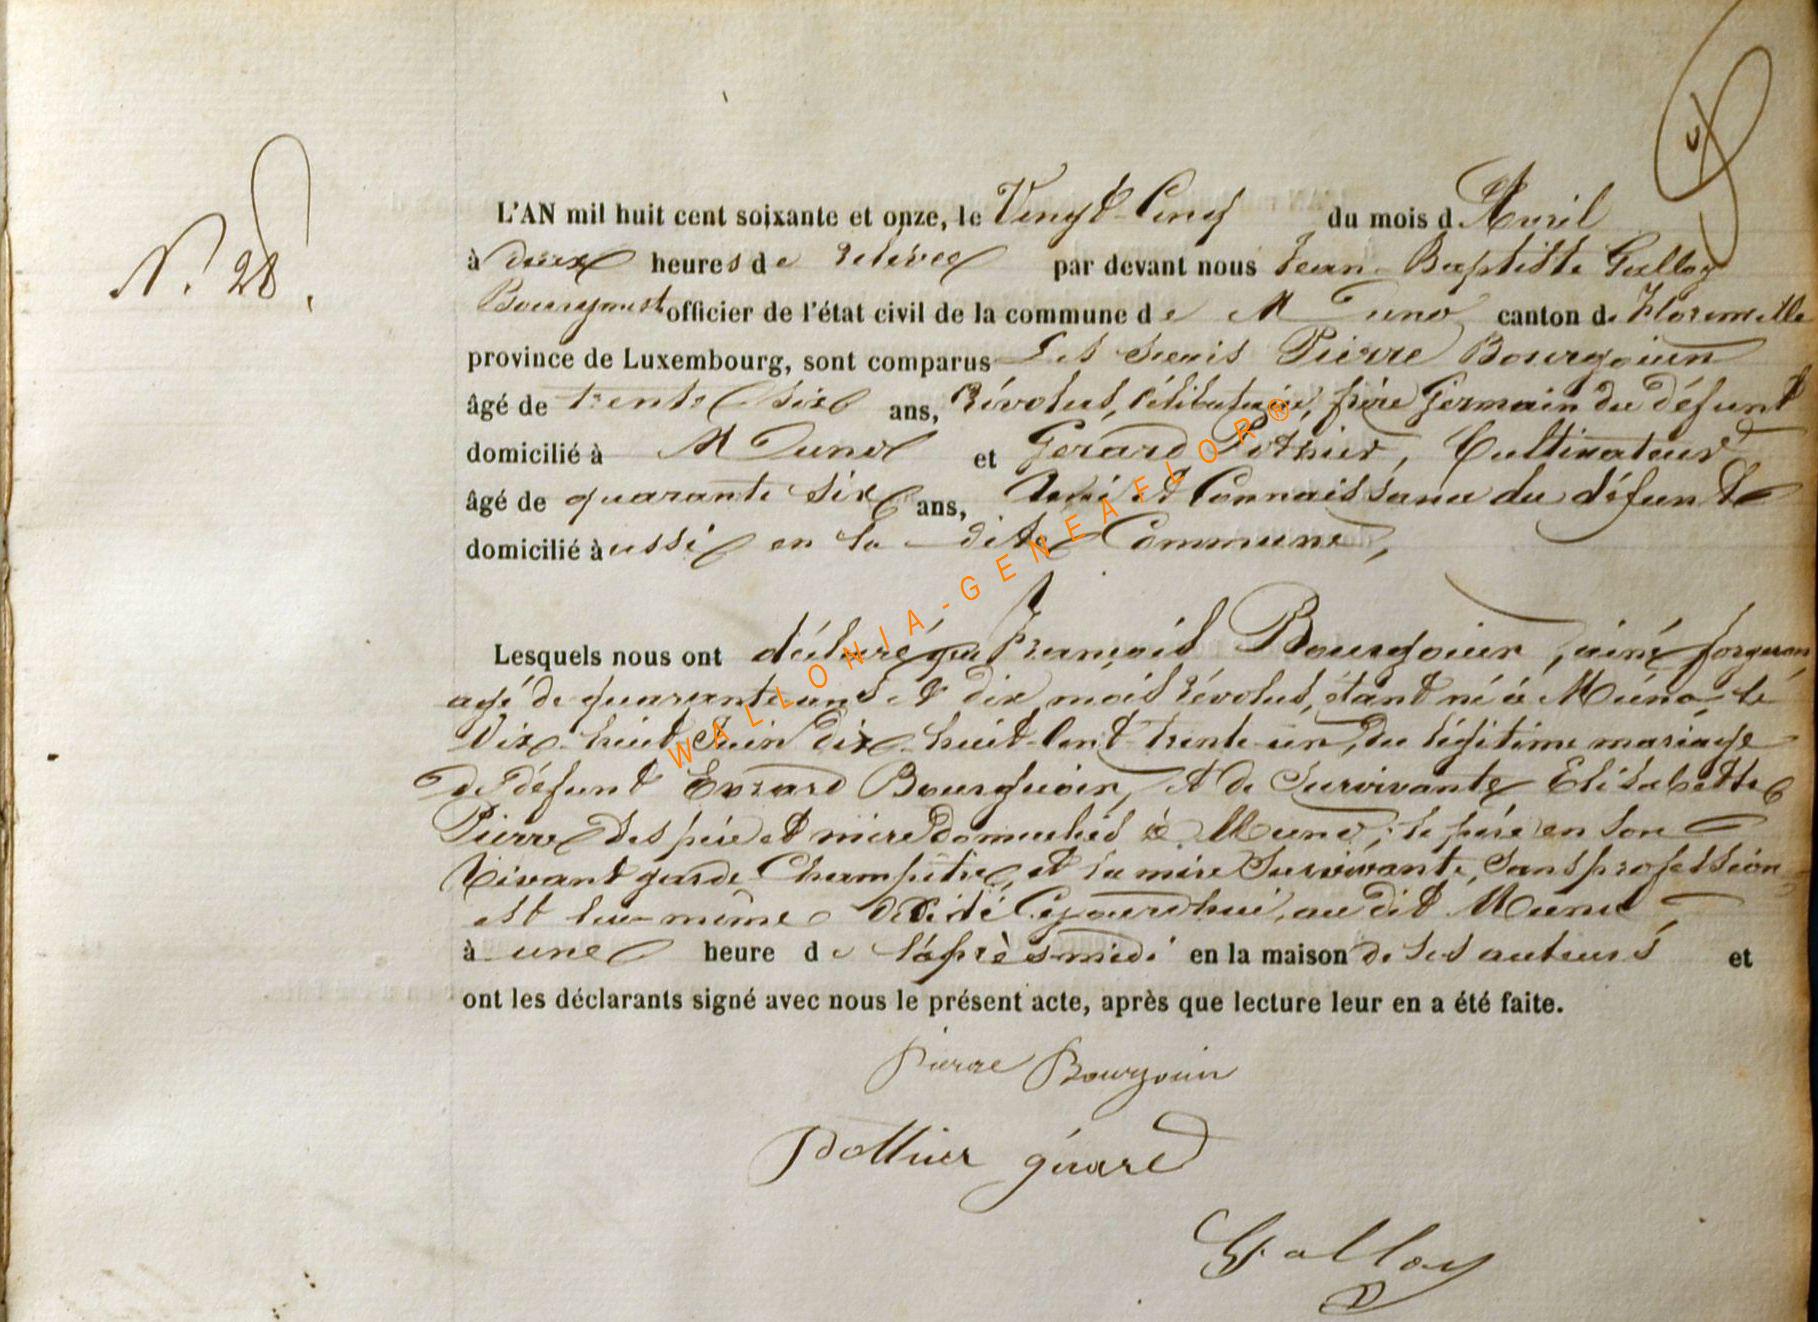 N.° 28.
L'AN mil huit cent soixante et onze, le Vingt-Cinq du mois d'Avril
à deux heures de relevée par devant nous Jean-Baptiste Galloy
Bourgmest officier de l'état civil de la commune de Muno canton de Florenville
province de Luxembourg, sont comparus Les sieurs Pierre Bourgoin
âgé de trente six ans, Révolus, Célibataire, frère Germain du défunt
domicilié à Muno et Gerard Pothier, Cultivateur
âgé de quarante six ans, Ami et Connaissance du défunt
domicilié aussi en la dite Commune,
Lesquels nous ont déclaré que François Bourgoin, ainé forgeron,
agé de quarante uns et dix mois révolus, étant né à Muno le
Dix-huit Juin dix-huit-Cent-trente-un, du légitime mariage
de défunt Evrard Bourguoin, et de Survivante Elisabette
Pierre des père et mère domiciliés à Muno; le père en son
Vivant garde Champêtre, et la mère Survivante, Sans profession
est lui-même Décédé Cejourdhui, au dit Muno
à une heure de l'après-midi en la maison de ses auteurs et
ont les déclarants signé avec nous le présent acte, après que lecture leur en a été faite.
Pierre Bourgoin
Pothier gérard
Galloy
WALLONIA-GENEAFLOR®